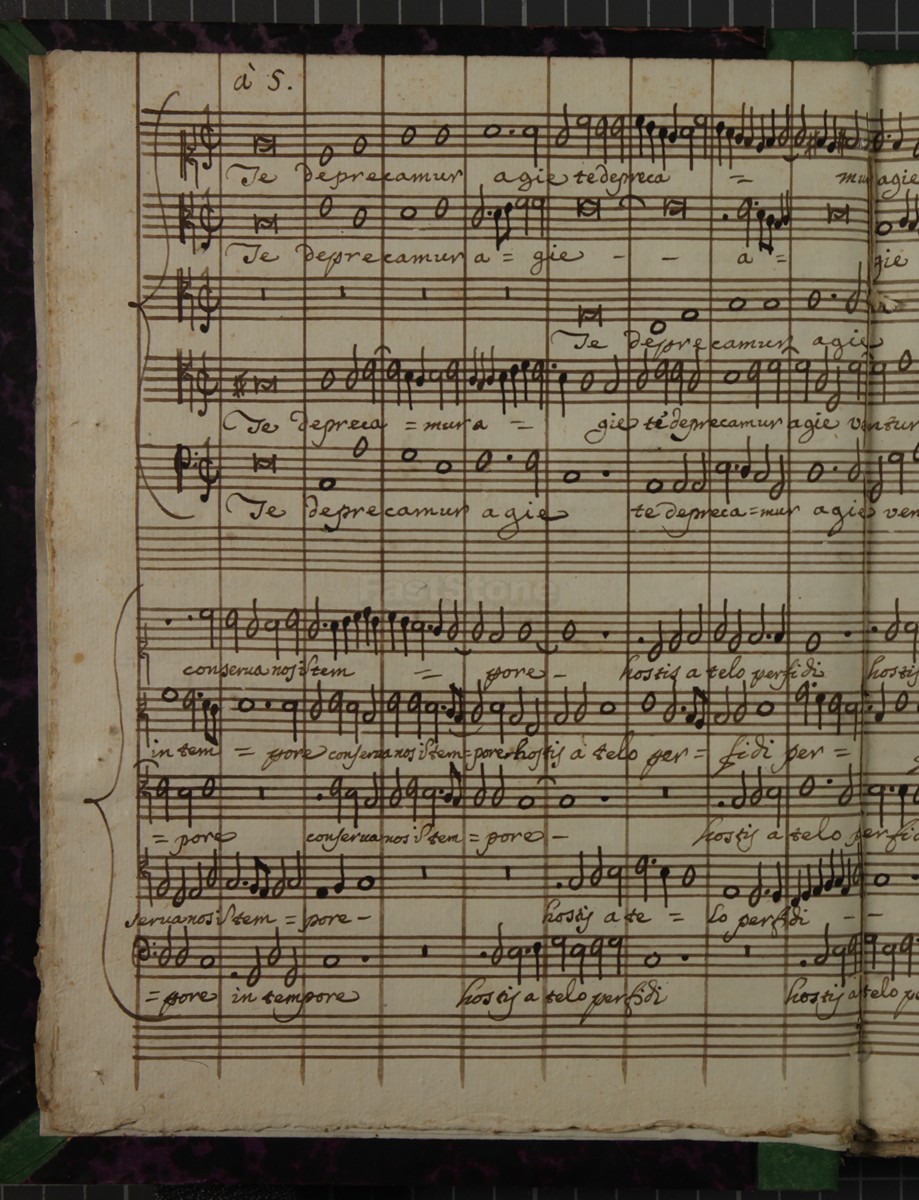 à 5.
Te deprecamur agie te depreca = mur agie
Te deprecamur a = gie - - a = gie
Te deprecamur agie
Te depreca = mur a = gie te deprecamur agie ventur
Te deprecamur agie te depreca = mur agie ven
FastStone
conserua nos istem = pore - hostis a telo perfidi hostis
in tem = pore conserua nos istem = pore hostis a telo per = fidi per =
= pore conserua nos istem = pore - hostis a telo perfidi
serua nos istem = pore - hostis a te = lo perfidi - -
= pore in tempore hostis a telo perfidi hostis a telo pe